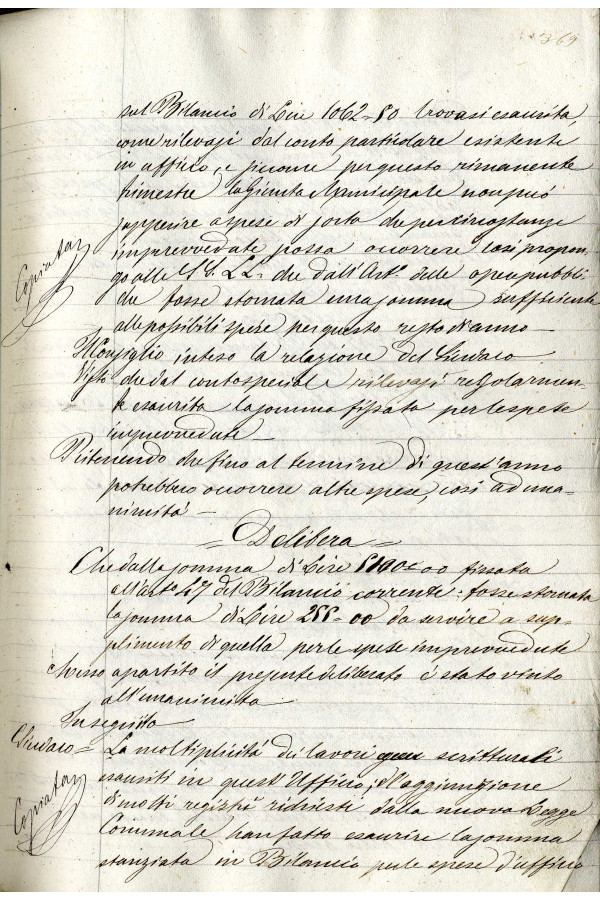 369
sul Bilancio di Lire 1062=80 trovasi esaurita,
come rilevasi dal conto particolare esistente
in ufficio, e siccome per questo rimanente
trimestre la Giunta Municipale non può
supperire a spese di sorta che per circostanze
imprevvedute possa occorrere così propon-
go alle SS. LL. che dall'Art.º delle opere pubbli-
che fosse stornata una somma sufficiente
alle possibili spese per questo resto di anno —
Il Consiglio inteso la relazione del Sindaco
Visto che dal conto speciale rilevasi regolarmen-
te esaurita la somma fissata per le spese
imprevvedute —
Ritenendo che fino al termine di quest'anno
potrebbero occorrere altre spese, così ad una-
nimità —
= Delibera =
Che dalla somma di Lire = 00 fissata
all'art.º 47 del Bilancio corrente: fosse stornata
la somma di Lire 255=00 da servire a sup-
plimento di quella per le spese imprevvedute
Messo a partito il presente deliberato è stato vinto
all'unanimità
In seguito
Sindaco = La moltiplicità dei lavori scritturali
esauriti in quest'Ufficio; l'aggiunzione
di molti registri richiesti dalla nuova Legge
Comunale han fatto esaurire la somma
stanziata in Bilancio per le spese d'ufficio
Copiata
Copiata